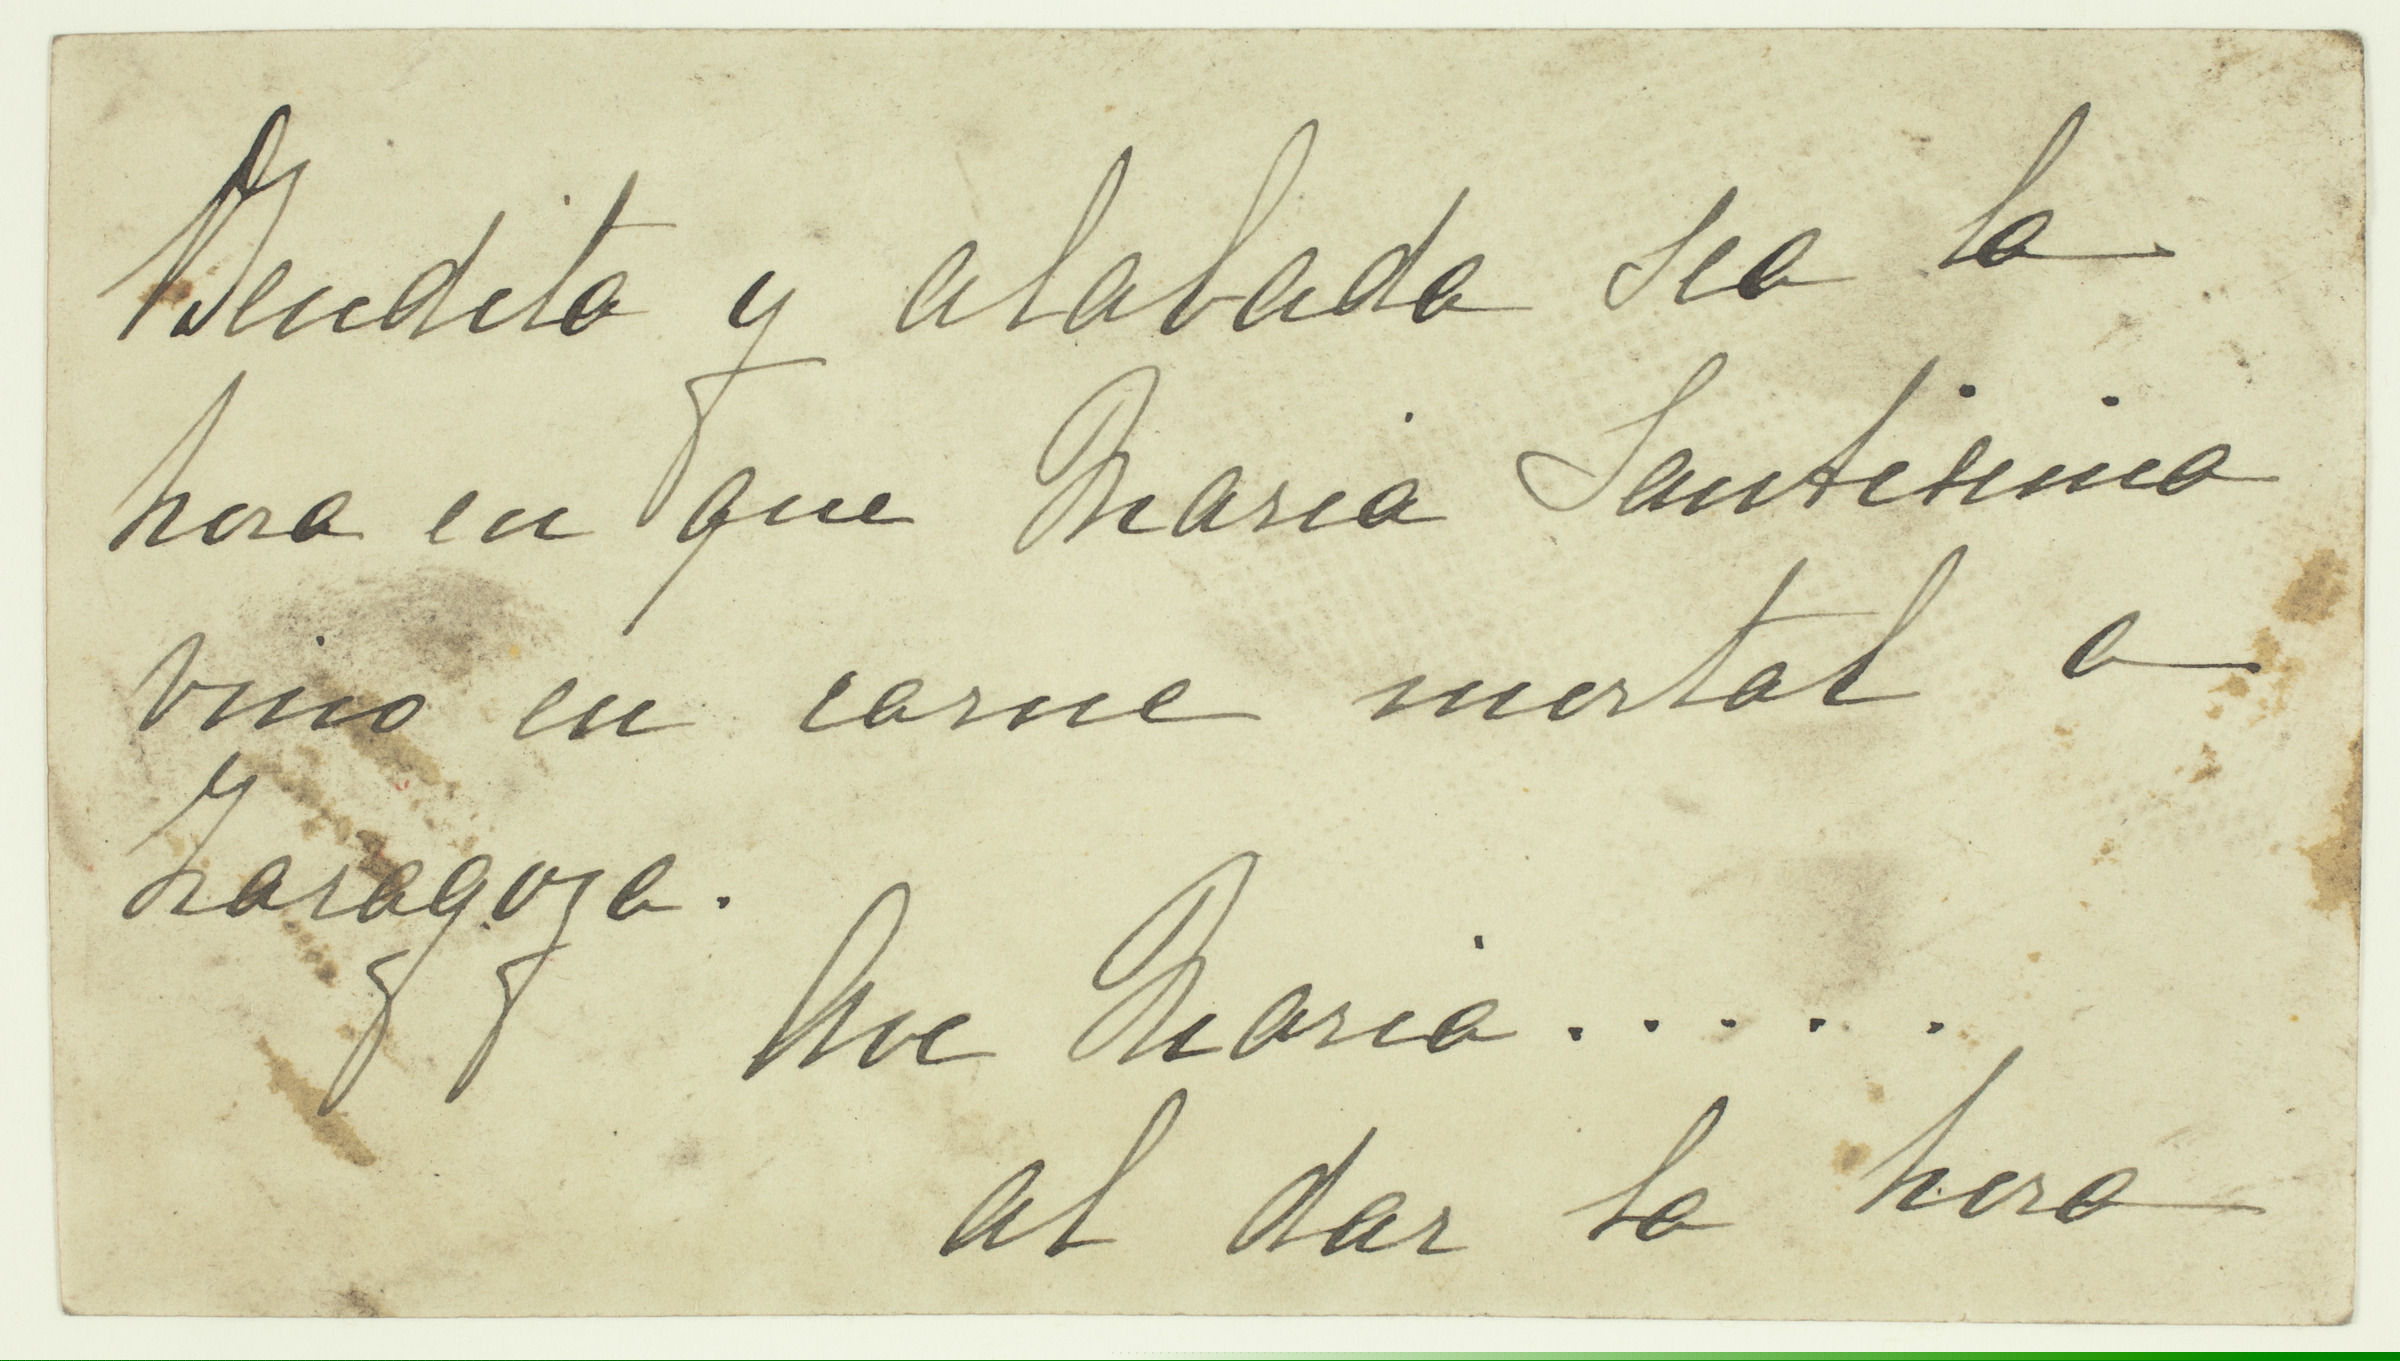 Bendita y alabada sea la
hora en que Maria Santisima
vino en carne mortal a
Zaragoza.
Ave Maria.....
al dar la hora